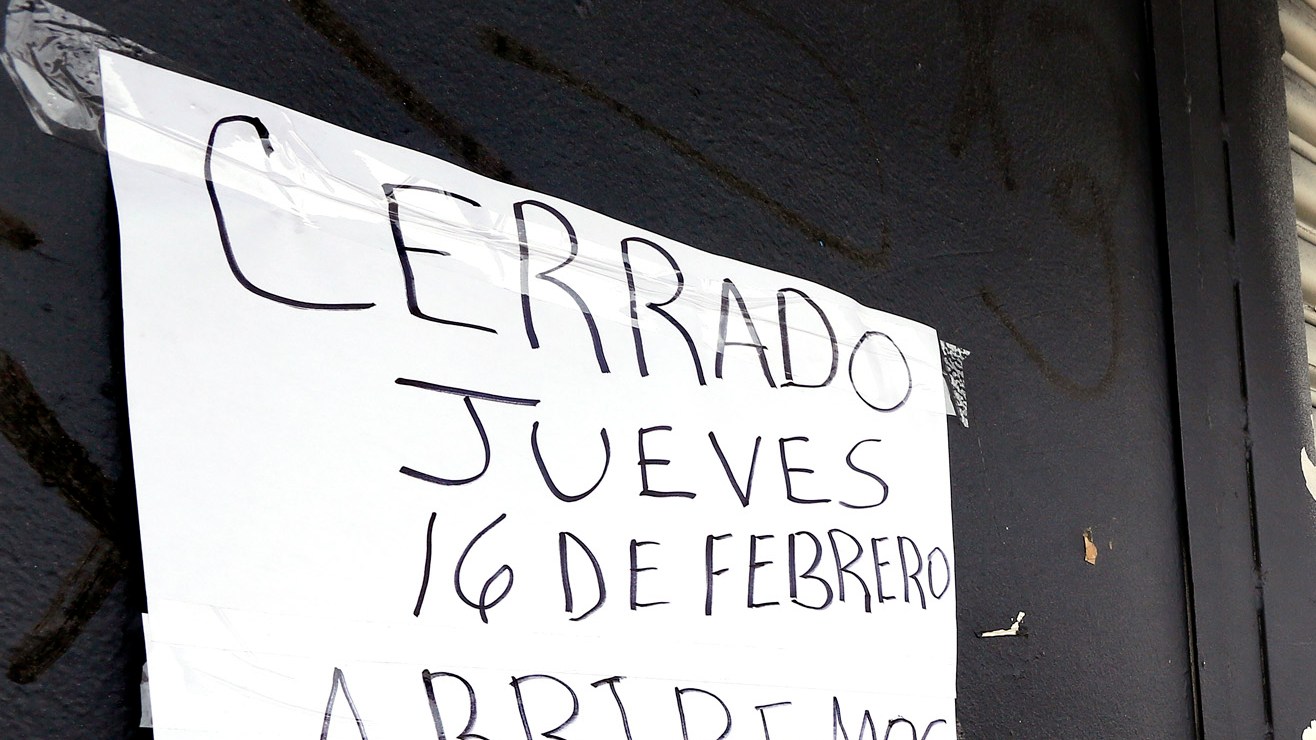 CERRADO
JUEVES
16 DE FEBRERO
ABRIREMOS